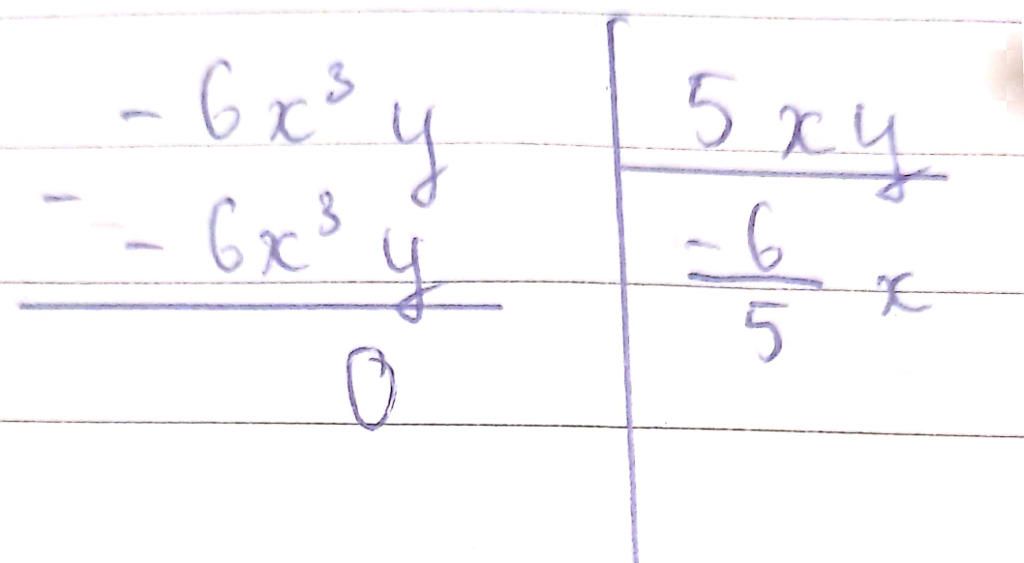 - 6x³y | 5xy
- - 6x³y | -6/5 x
0